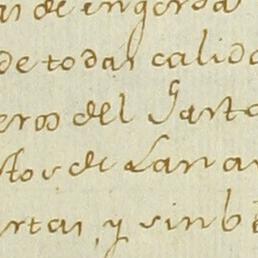 as de engorda
de todas calida
eros del Gasto
stos de Lana
ertas, y sin b